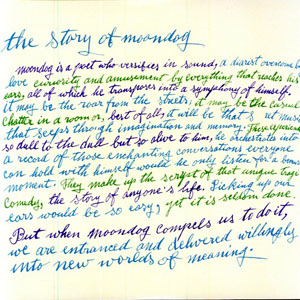 the story of moondog
moondog is a poet who versifies in sound, a diarist overcome by
love curiosity and amusement by everything that reaches his
ears, all of which he transposes into a symphony of himself.
it may be the roar from the streets, it may be the casual
chatter in a room or, best of all, it will be that s et music
that seeps through imagination and memory. These
so dull to the dull but so alive to him, he distills into
a record of those enchanting conversations everyone
can hold with himself would he only listen for a
moment. They make up the script of that unique tragic
comedy, the story of anyone's life. Picking up our
ears would be so easy; yet it is seldom done
But when moondog compels us to do it,
we are entranced and delivered willingly
into new worlds of meaning.